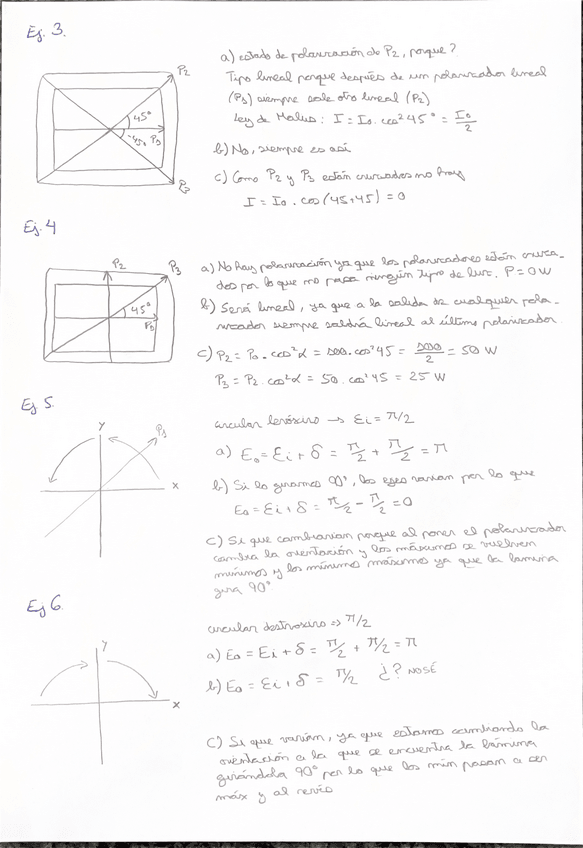 Ej. 3.
a) estado de polarización de P2, porque?
P2
Tipo lineal porque después de un polarizador lineal
(P1) siempre sale otro lineal (P2)
45°
Ley de Malus: I = I0 . cos² 45° = I0/2
-45°
b) No, siempre es así
c) Como P2 y P3 están cruzados no hay
P3
I = I0 . cos (45+45) = 0
Ej. 4
P2
P3
a) No hay polarización ya que los polarizadores están cruza-
dos por lo que no pasa ningún tipo de luz. P = 0 W
b) Será lineal, ya que a la salida de cualquier pola-
45°
rizador siempre saldrá lineal al último polarizador.
c) P2 = P0 . cos² α = 100 . cos² 45 = 100/2 = 50 W
P3 = P2 . cos² α = 50 . cos² 45 = 25 W
Ej 5.
circular levóxiro → Ei = π/2
y
P1
a) E0 = Ei + δ = π/2 + π/2 = π
x
b) Si lo giramos 90°, los ejes varian por lo que
E0 = Ei + δ = π/2 - π/2 = 0
c) Si que cambiarian porque al poner el polarizador
cambia la orientación y los máximos se vuelven
mínimos y los mínimos máximos ya que la lámina
gira 90°
Ej 6.
circular destroxiro => π/2
y
a) E0 = Ei + δ = π/2 + π/2 = π
b) E0 = Ei + δ = π/2 ¿? NO SÉ
x
c) Si que varían, ya que estamos cambiando la
orientación a la que se encuentra la lámina
girándola 90° por lo que los min pasan a ser
máx y al revés